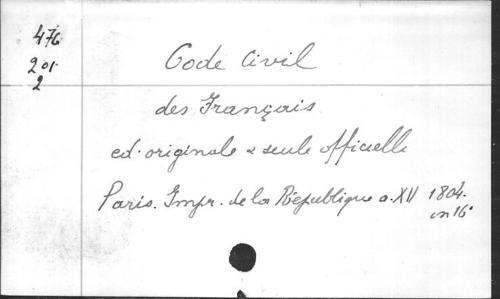 476
201
2
Code Civil
des Français
ed. originale & seule officielle
Paris. Impr. de la République a. XII 1804.
in 16°